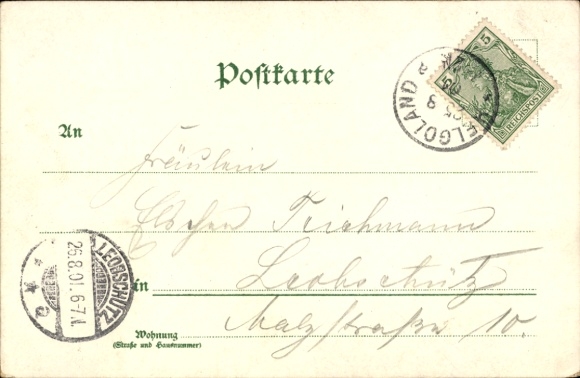 Postkarte
5
REICHSPOST
HELGOLAND
An
Fräulein
Elschen Teichmann
in
Leobschütz
Malzstraße 10.
Wohnung
(Straße und Hausnummer)
LEOBSCHÜTZ
26.8.01.6-7.V.